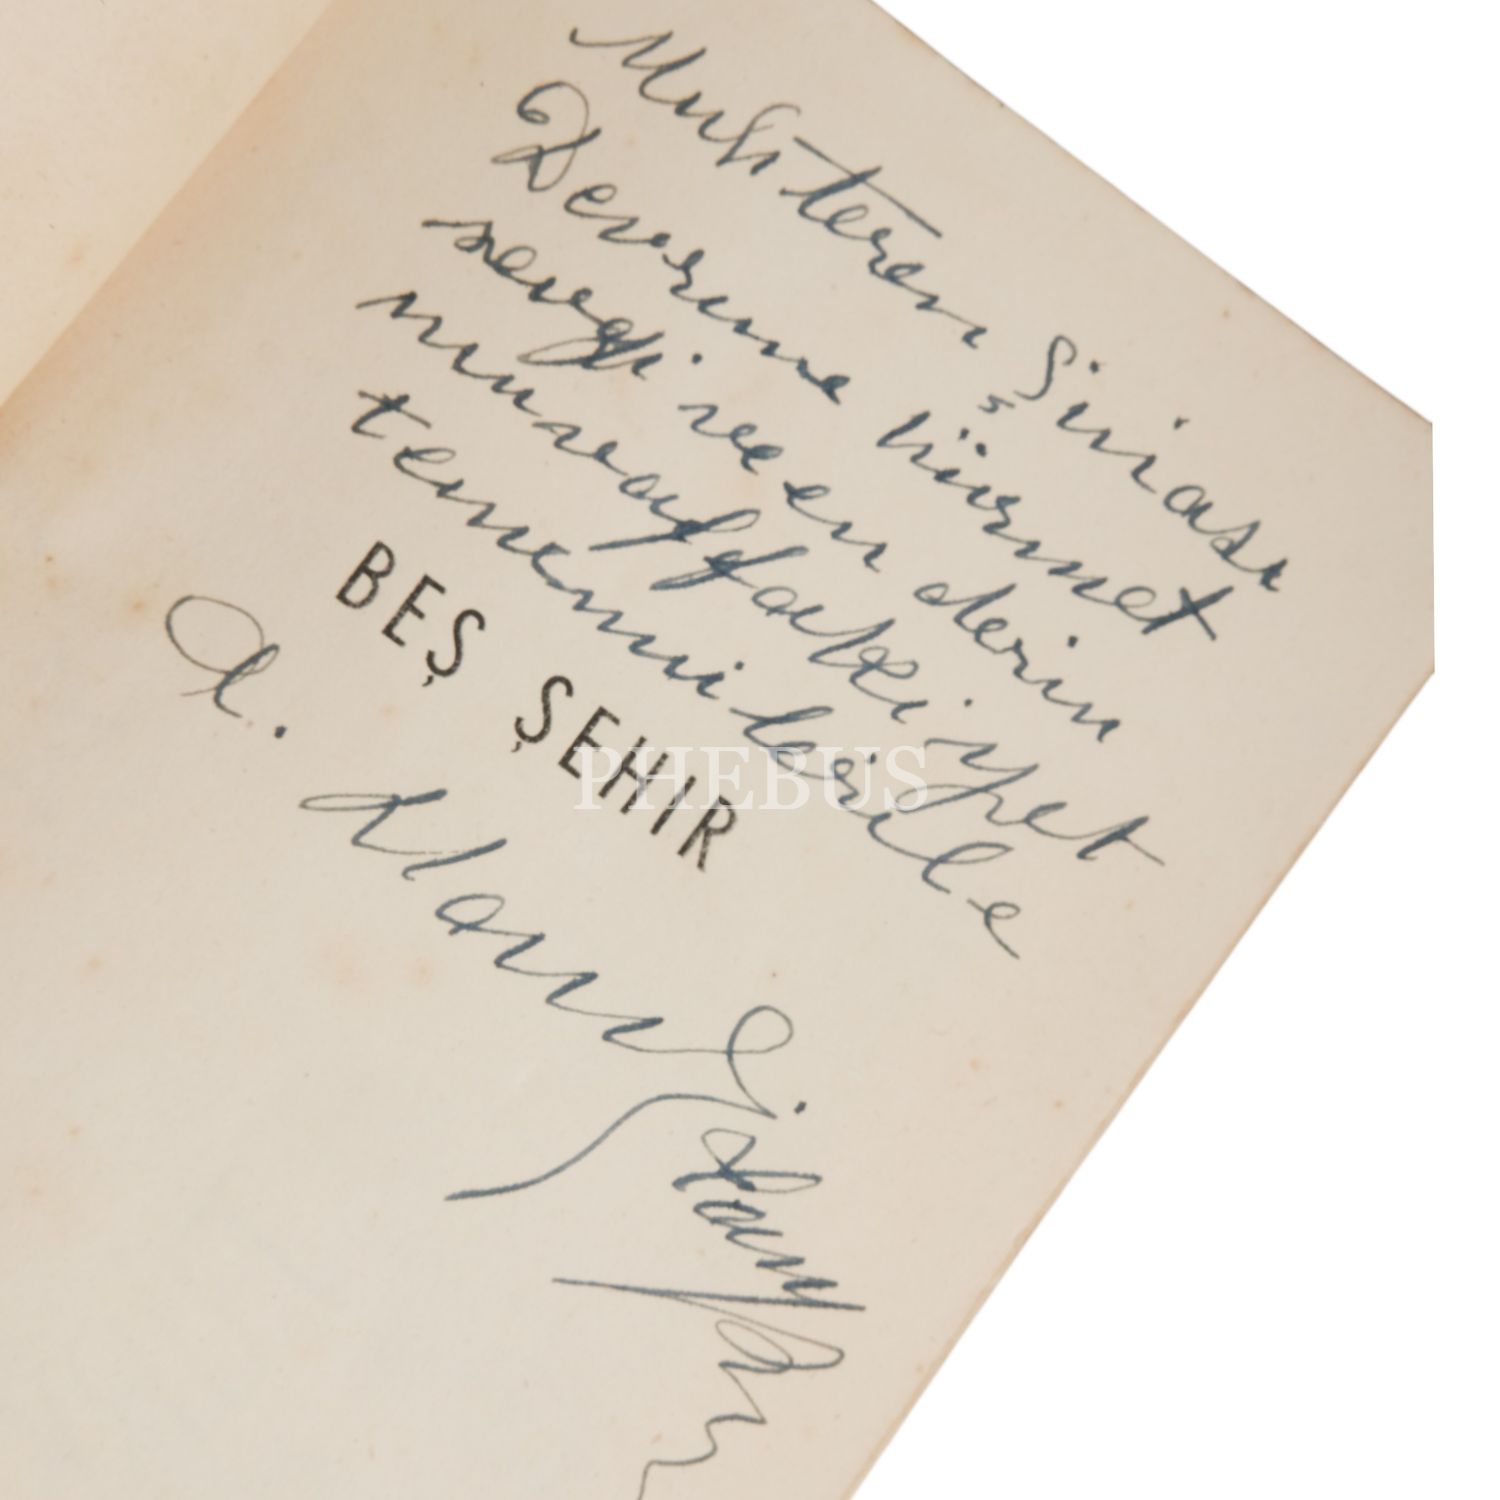 Muhterem Şinasi
Devrime hürmet
sevgi ve en derin
muvaffakiyet
temennilerile
BEŞ ŞEHİR
A. Hamdi Tanpınar
PHEBUS